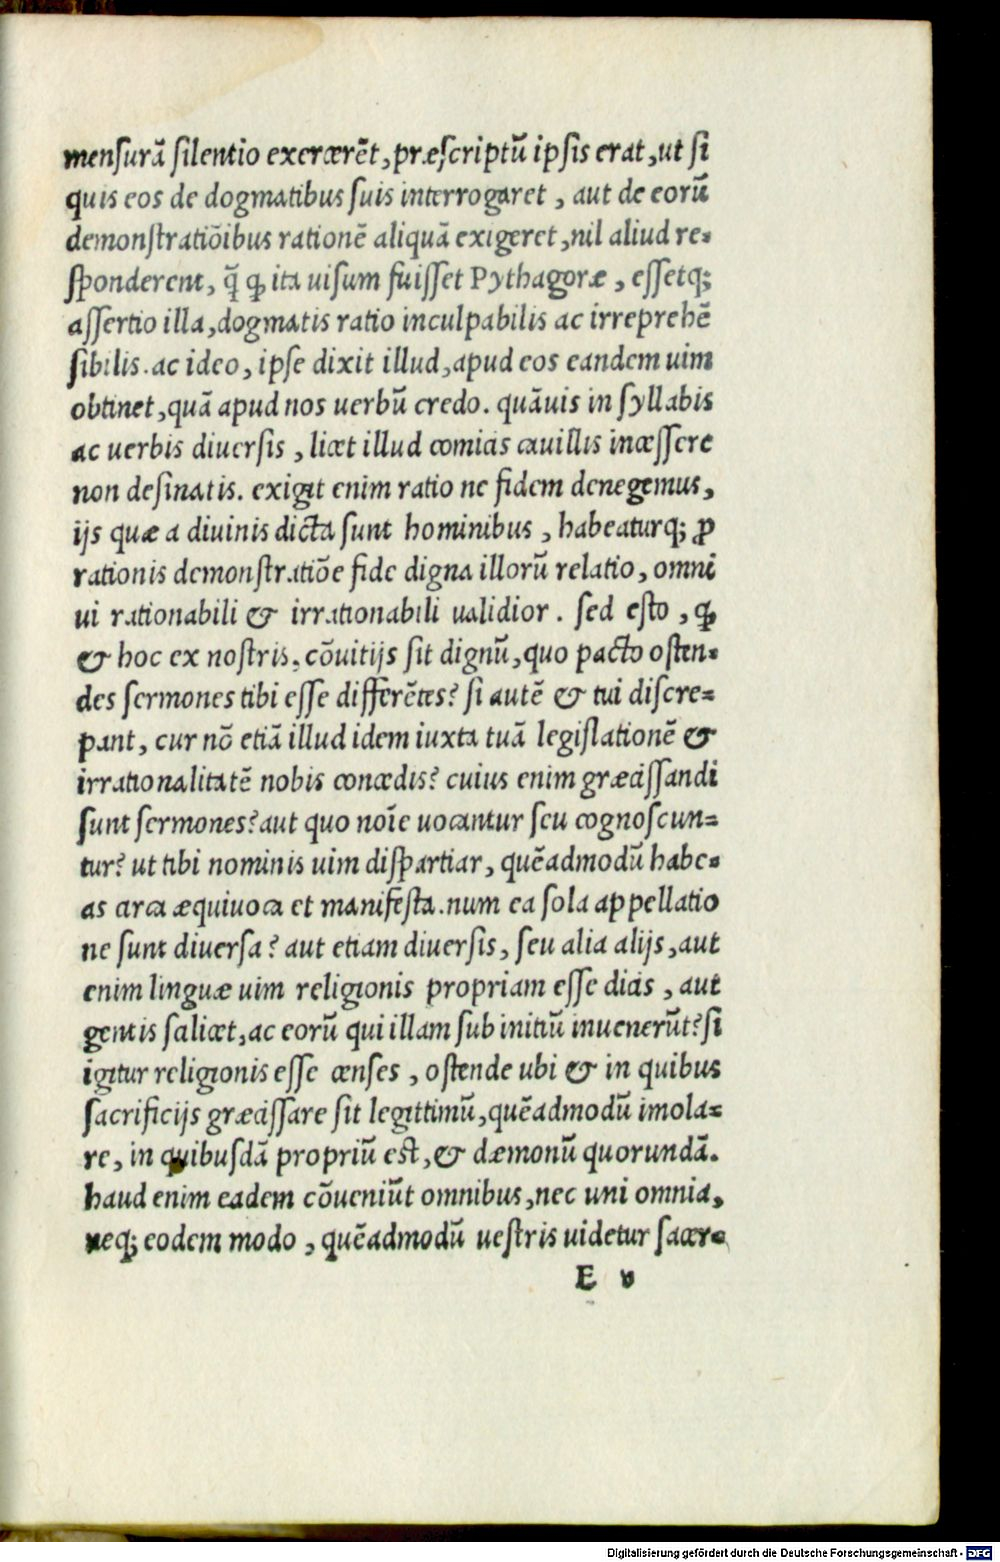 mensurā silentio exercerēt, præscriptū ipsis erat, ut si
quis eos de dogmatibus suis interrogaret, aut de eorū
demonstratiōibus rationē aliquā exigeret, nil aliud re-
sponderent, q̄ ꝙ ita uisum fuisset Pythagoræ, essetq;
assertio illa, dogmatis ratio inculpabilis ac irreprehē
sibilis. ac ideo, ipse dixit illud, apud eos eandem uim
obtinet, quā apud nos uerbū credo. quāuis in syllabis
ac uerbis diuersis, licet illud comicis cauillis incessere
non desinatis. exigit enim ratio ne fidem denegemus,
ijs quæ a diuinis dicta sunt hominibus, habeaturq; ꝓ
rationis demonstratiōe fide digna illorū relatio, omni
ui rationabili & irrationabili ualidior. sed esto, ꝙ
& hoc ex nostris, cōuitijs sit dignū, quo pacto osten-
des sermones tibi esse differētes? si autē & tui discre-
pant, cur nō etiā illud idem iuxta tuā legislationē &
irrationalitatē nobis concedis? cuius enim græcissandi
sunt sermones? aut quo noīe uocantur seu cognoscun-
tur? ut tibi nominis uim dispartiar, quēadmodū habe-
as circa æquiuoca et manifesta. num ea sola appellatio
ne sunt diuersa? aut etiam diuersis, seu alia alijs, aut
enim linguæ uim religionis propriam esse dicis, aut
gentis salicet, ac eorū qui illam sub initiū inuenerūt? si
igitur religionis esse censes, ostende ubi & in quibus
sacrificijs græcissare sit legittimū, quēadmodū imola-
re, in quibusdā propriū est, & dæmonū quorundā.
haud enim eadem cōueniūt omnibus, nec uni omnia,
neq; eodem modo, quēadmodū uestris uidetur sacer-
E v
Digitalisierung gefördert durch die Deutsche Forschungsgemeinschaft - DFG